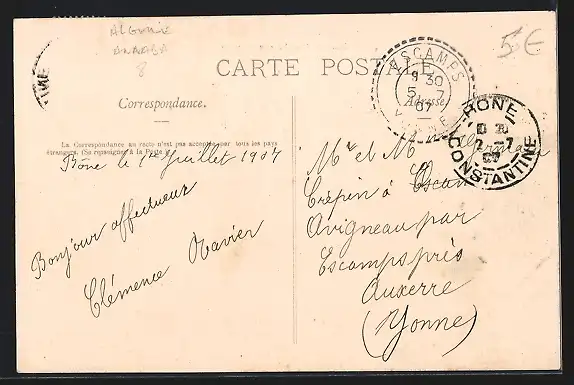 ALGERIE
ANNABA
8
5€
CARTE POSTALE
ESCAMPS
9 30
5 - 7
07
YONNE
BONE
2 - 7
07
CONSTANTINE
Correspondance.
Adresse
La Correspondance au recto n'est pas acceptée par tous les pays
étrangers. (Se renseigner à la Poste)
Bône le 1er Juillet 1907
Bonjour affectueux
Clémence Navier
Mr et Me Germain
Crépin à Escamps
Avigneau par
Escamps près
Auxerre
(Yonne)